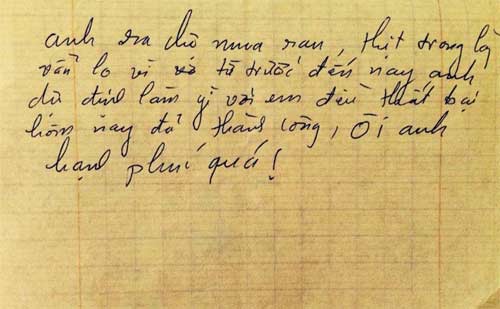 anh ra chợ mua rau, thịt trong lòng
vẫn lo vì từ trước đến nay anh
dự định làm gì với em đều thất bại
hôm nay đã thành công, Ôi anh
hạnh phúc quá!